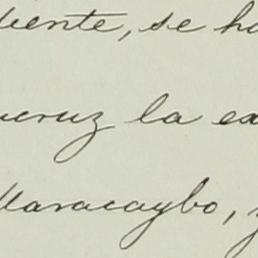 uente, se ha
veruz la ex
Maracaybo, y